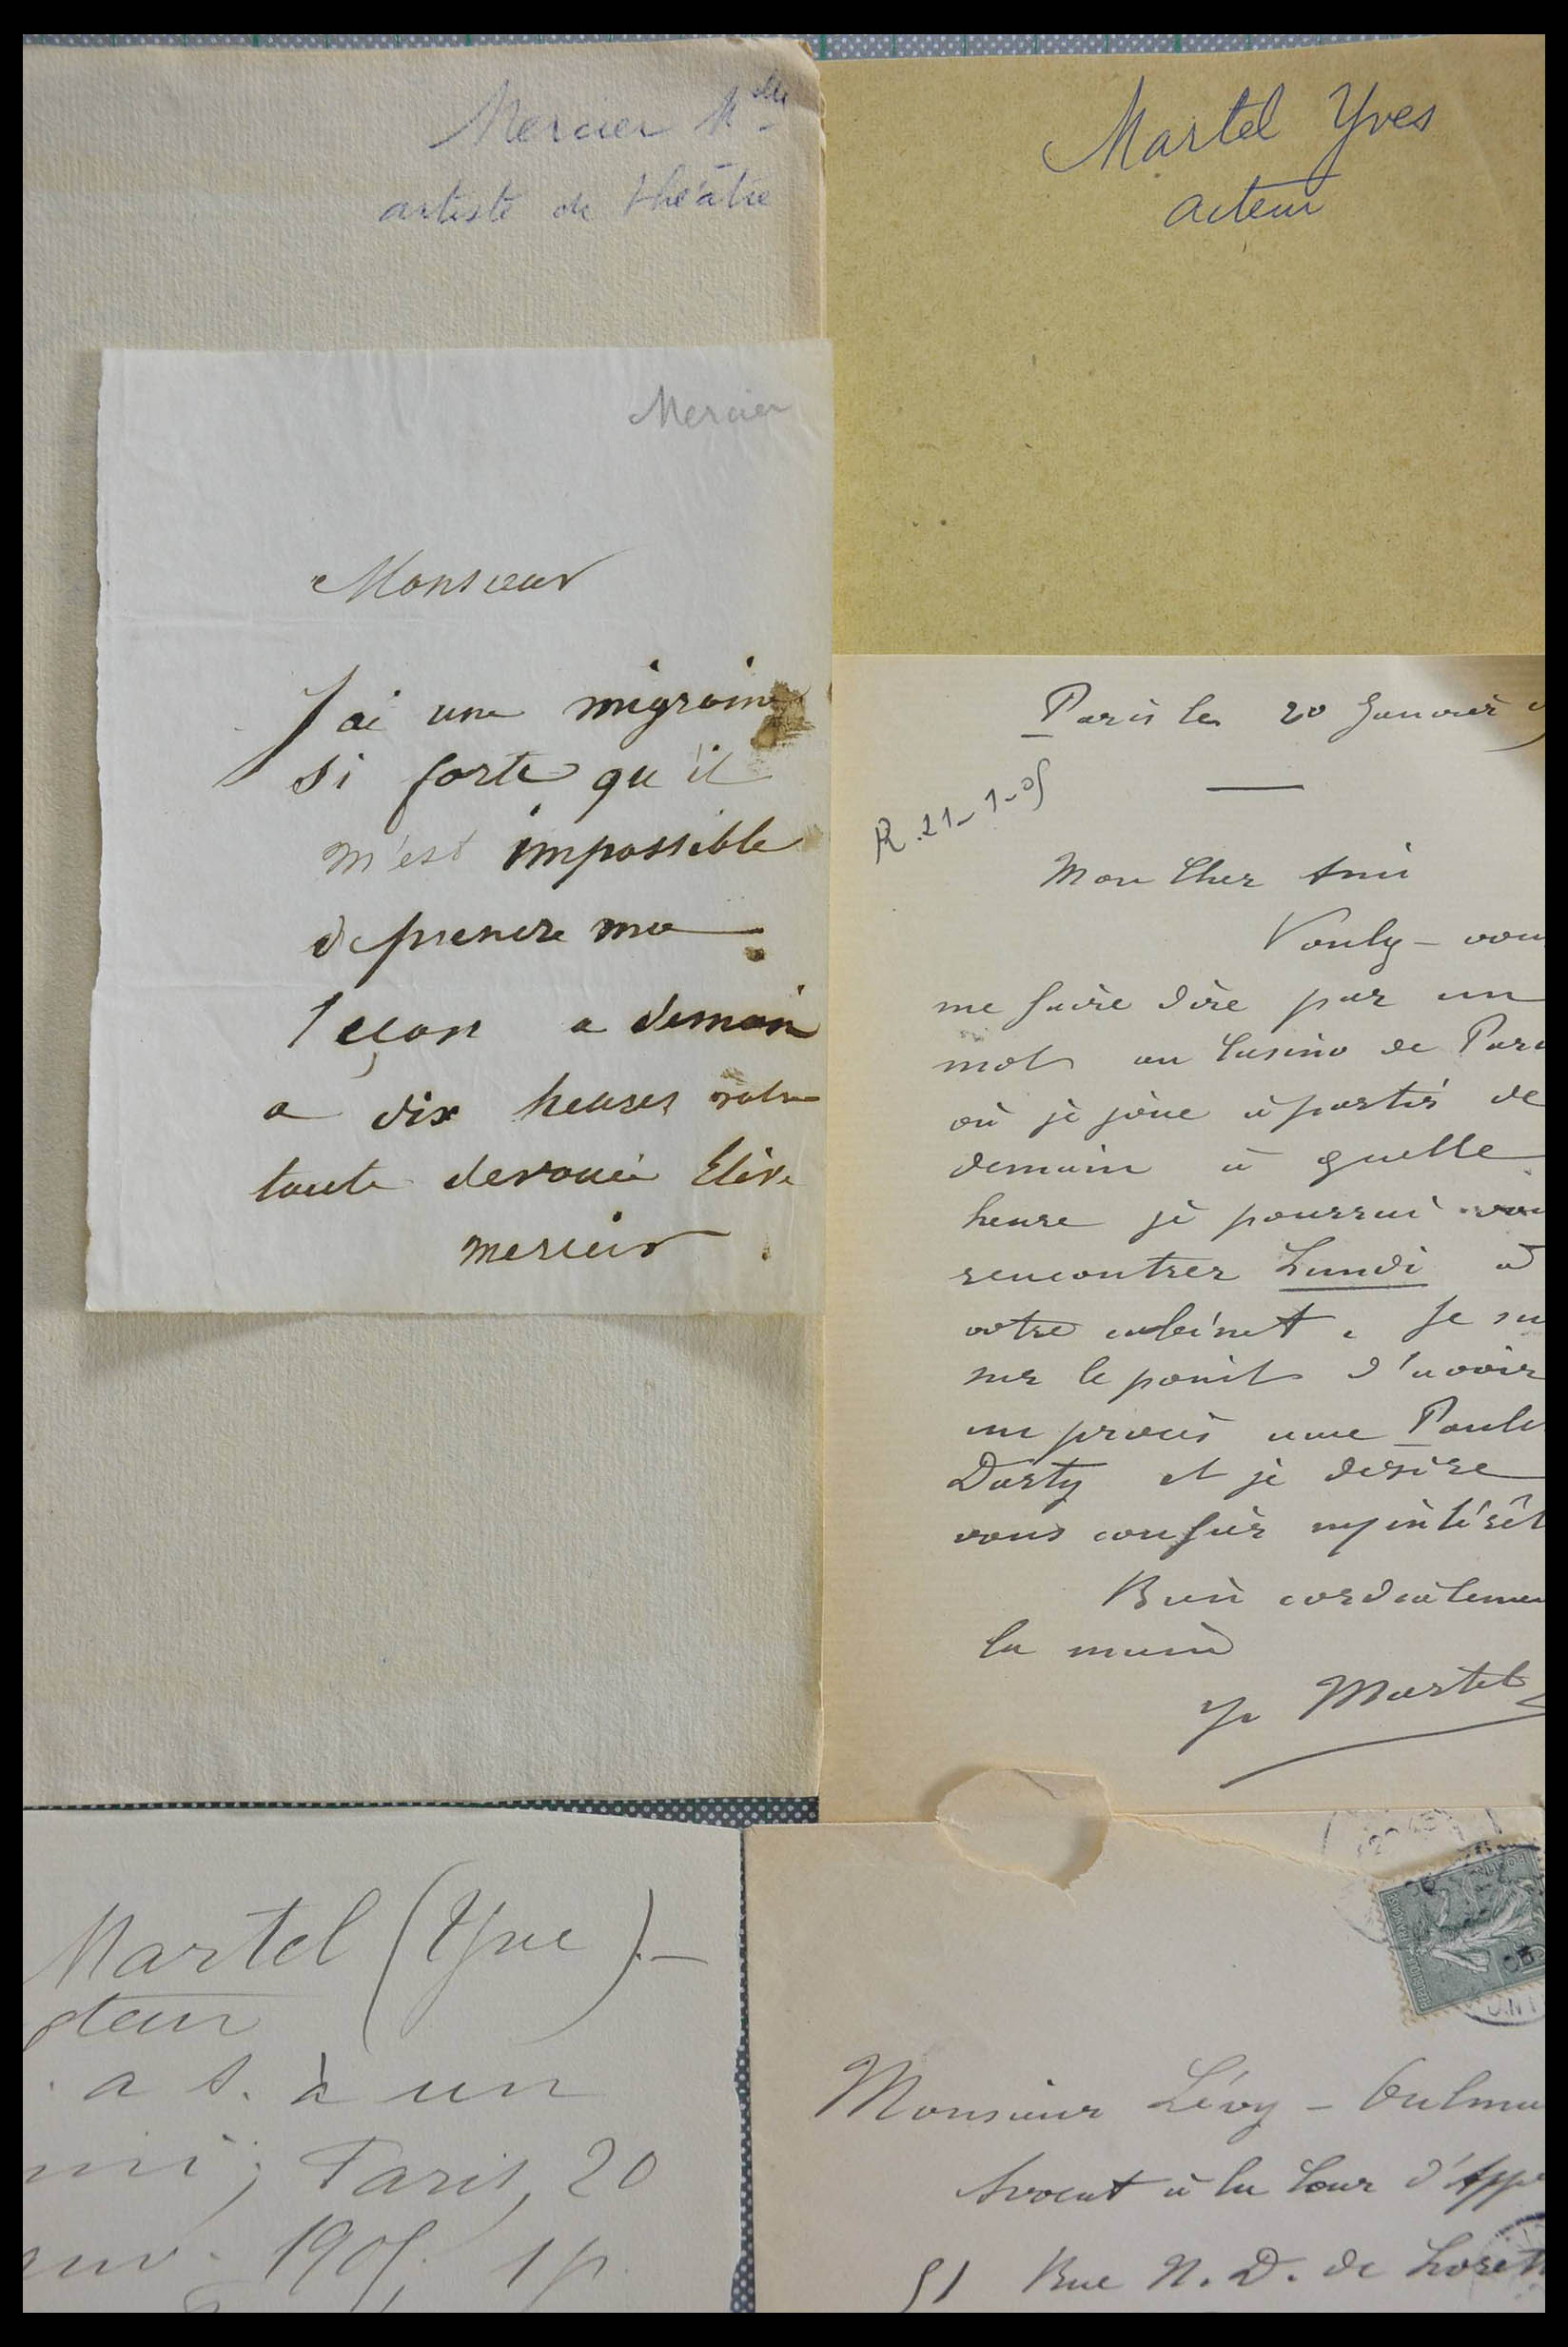 Mercier Mlle
artiste de théâtre
Mercier
Monsieur
J'ai une migraine
si forte qu'il
m'est impossible
de prendre ma
leçon a demain
a dix heures votre
toute devouée Elève
mercier
Martel Yves
acteur
Paris le 20 Janvier
R. 21-1-05
Mon Cher Ami
Voulez-vou
me faire dire par un
mot au Casino de Pari
où je joue à partir de
demain à quelle
heure je pourrai vou
rencontrer Lundi à
votre cabinet. Je su
sur le point d'avoir
un procès avec Paule
Darty et je desire
vous confier my intérêt
Bien cordialemen
la main
Yv Martel
Martel (Yve).—
cteur
. a s. à un
mi ; Paris, 20
nv. 1905, 1 p.
Monsieur Lévy - Oulma
Avocat à la Cour d'Appe
51 Rue N. D. de Lorett